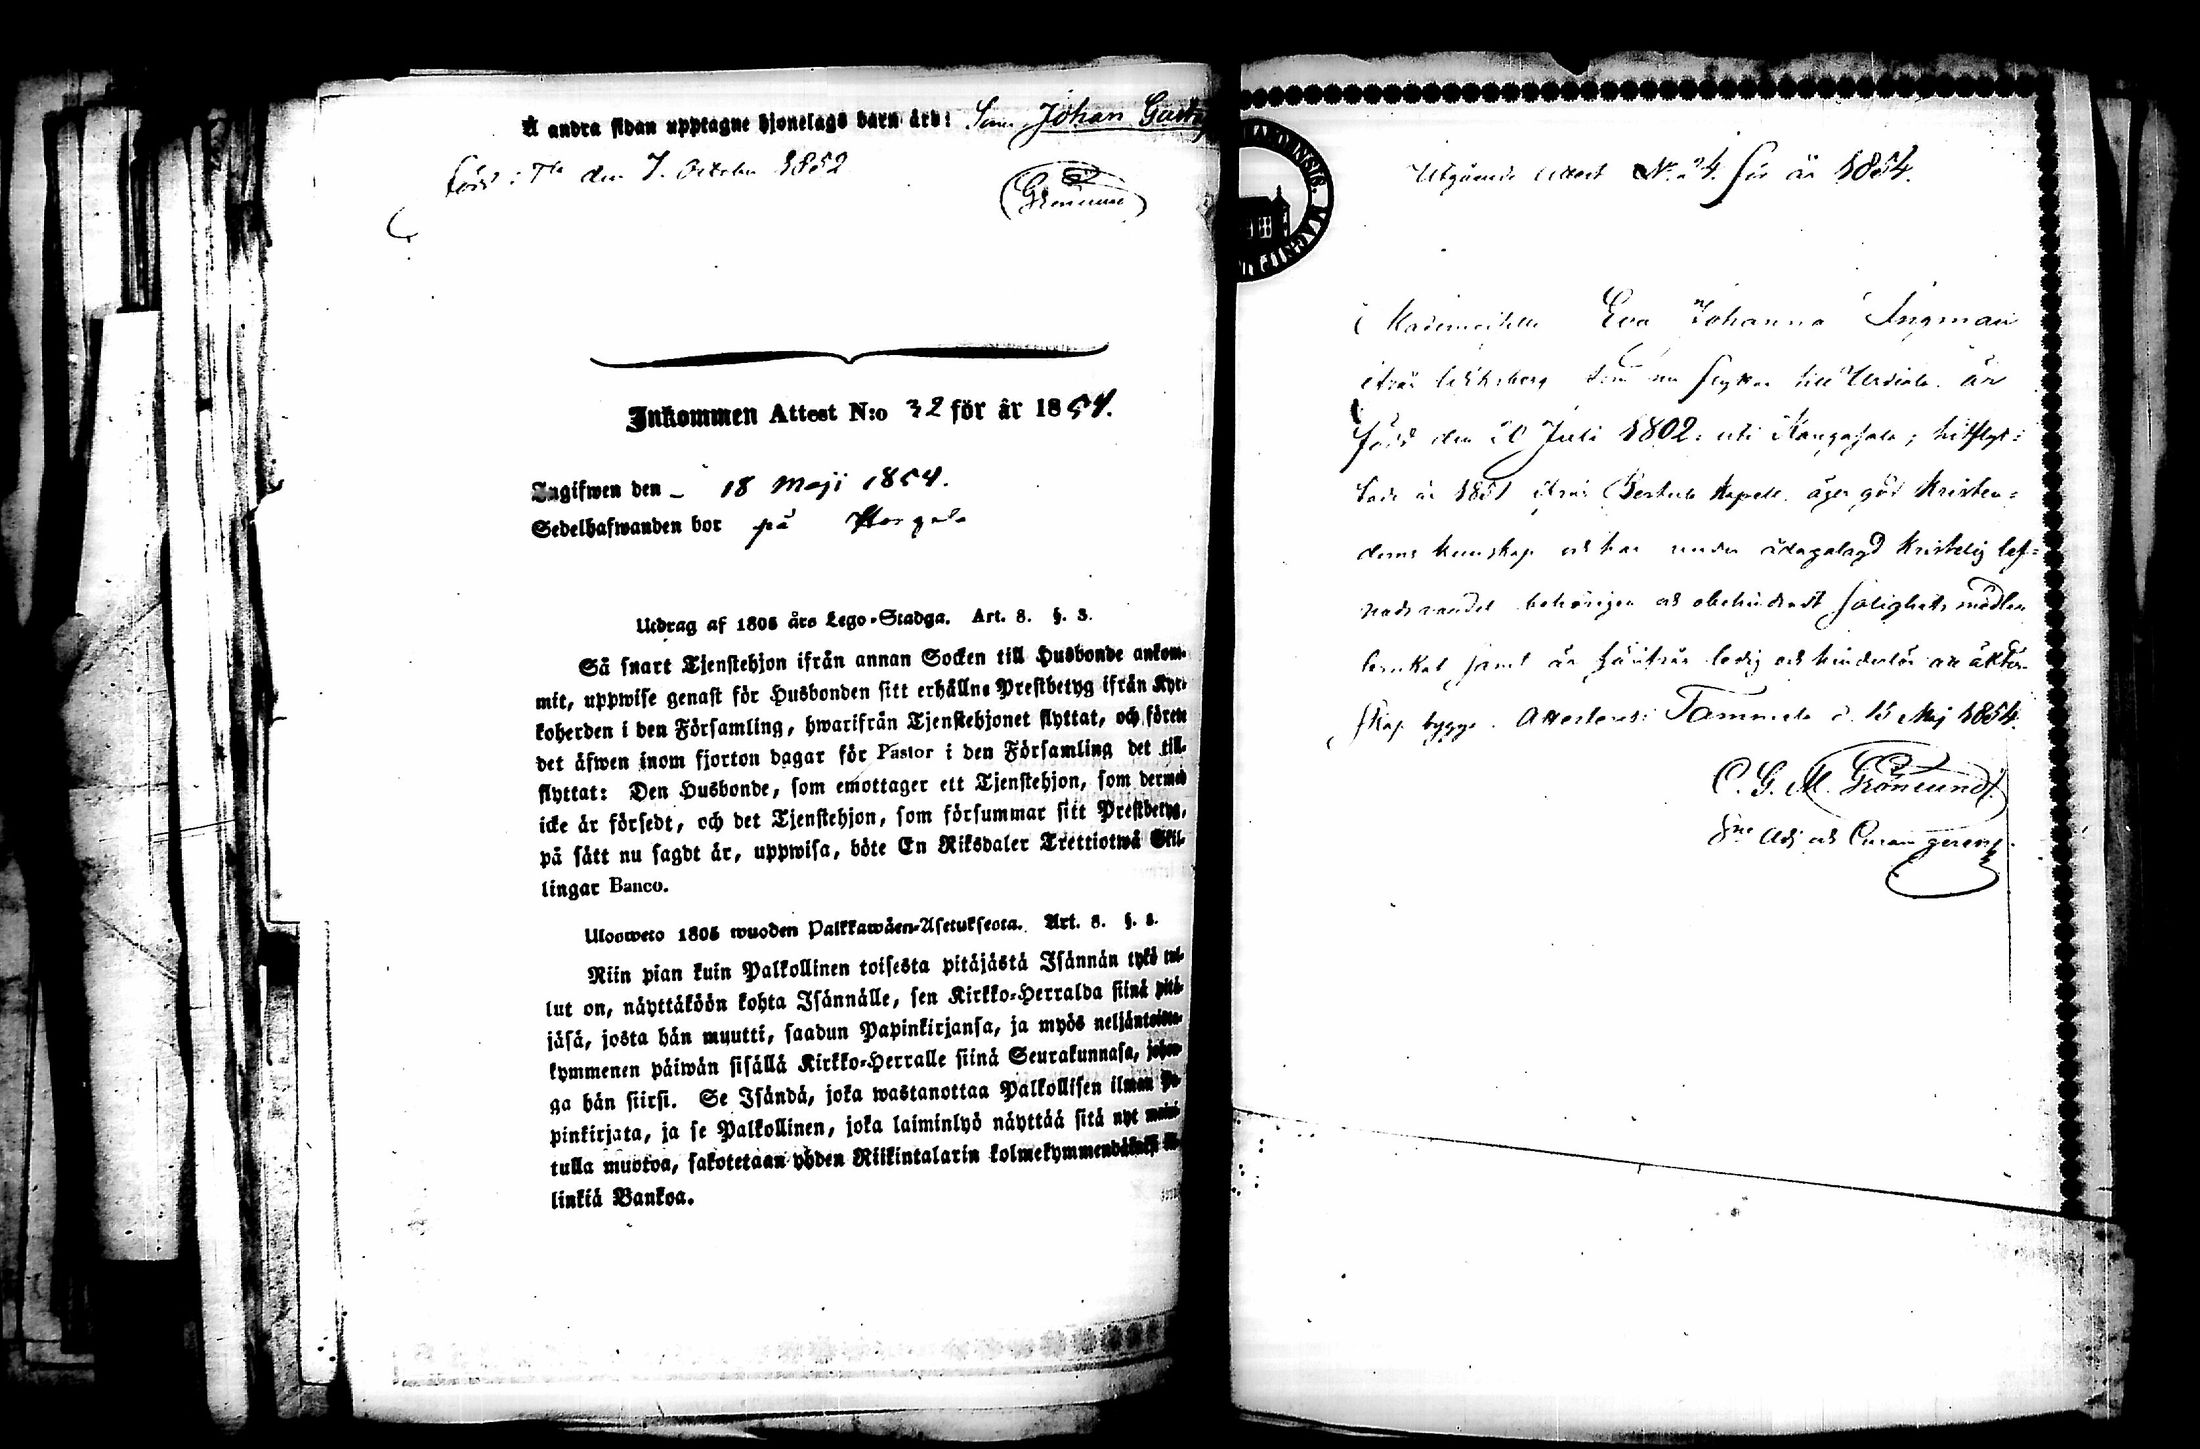 Å andra sidan upptagne hjonelags barn äro: Johan Gustaf
född: den 7. October 1852
Grönlund
Inkommen Attest N:o 32 för år 1854.
Ingifwen den 18 Maji 1854.
Sedelhafwanden bor på
Utdrag af 1805 års Lego-Stadga. Art. 8. §. 3.
Så snart Tjenstehjon ifrån annan Socken till Husbonde ankom-
mit, uppwise genast för Husbonden sitt erhållne Prestbetyg ifrån Kyr-
koherden i den Församling, hwarifrån Tjenstehjonet flyttat, och förete
det äfwen inom fjorton dagar för Pastor i den Församling det till-
flyttat: Den Husbonde, som emottager ett Tjenstehjon, som dermed
icke är försedt, och det Tjenstehjon, som försummar sitt Prestbetyg,
på sätt nu sagdt är, uppwisa, böte En Riksdaler Trettiotwå Skil-
lingar Banco.
Ulosweto 1805 wuoden Palkkawäen-Asetuksesta. Art. 8. §. 3.
Niin pian kuin Palkollinen toisesta pitäjästä Isännän tykö tul-
lut on, näyttäköön kohta Isännälle, sen Kirkko-Herralda siinä pitä-
jäsä, josta hän muutti, saadun Papinkirjansa, ja myös neljäntoista-
kymmenen päiwän sisällä Kirkko-Herralle siinä Seurakunnasa, johon-
ga hän siirsi. Se Isändä, joka wastanottaa Palkollisen ilman Pa-
pinkirjata, ja se Palkollinen, joka laiminlyö näyttää sitä nyt maini-
tulla muotoa, sakotetaan yhden Riikintalarin kolmekymmendäkaksi
linkiä Bankoa.
Utgående Attest N:o 24. för år 1854.
Mademoiselle Eva Johanna Ingman
ifrån som nu flyttar till Urdiala är
född den 20 Juli 1802 uti Kangasala, hitflyt-
tade år 1851 ifrån Kapell, äger god Kristen-
doms kunskap och har under ådagalagd Kristelig lef-
nadsvandel behörigen och obehindradt salighets medlen
brukat samt är härifrån ledig och hinderlös att äkten-
skap bygga. Attesteras: Tammela d. 15 Maj 1854.
C. G. M. Grönlund.
Adj och Curam gerens.